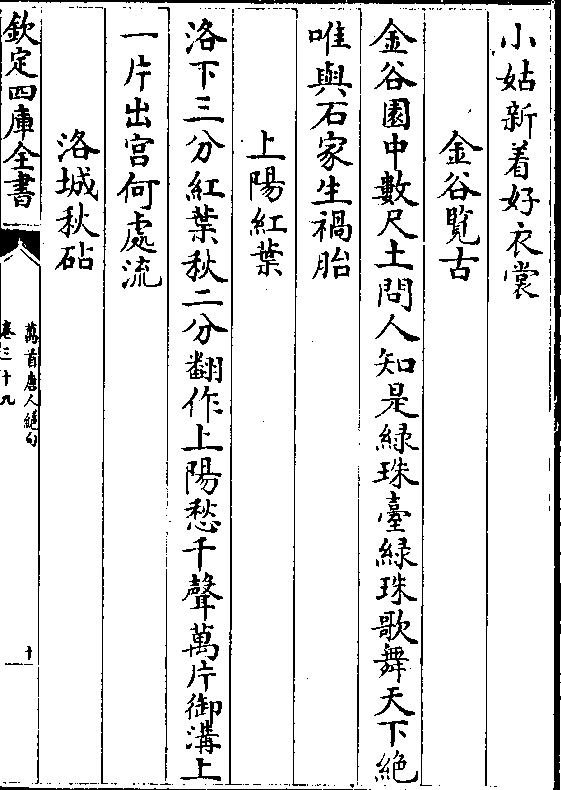 小姑新着好衣裳
金谷覽古
金谷園中數尺土問人知是緑珠臺緑珠歌舞天下絶
唯與石家生禍胎
上陽紅葉
洛下三分紅葉秋二分翻作上陽愁千聲萬片御溝上
一片出宫何處流
洛城秋砧
欽定四庫全書
萬首唐人絶句
卷三十九
十